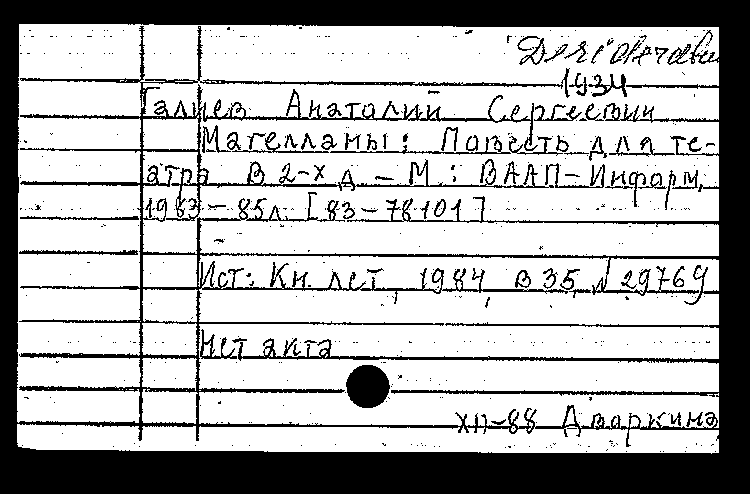 Desiderata
1934
Галиев Анатолий Сергеевич
Магеллатны: Повесть для те-
атра. В 2-х д. – М.: ВААП-Информ,
1983 – 85л. [83-78101]
Ист: Кн. лет, 1984, в 35, № 29769
Нет акта
XII-88 Дваркина